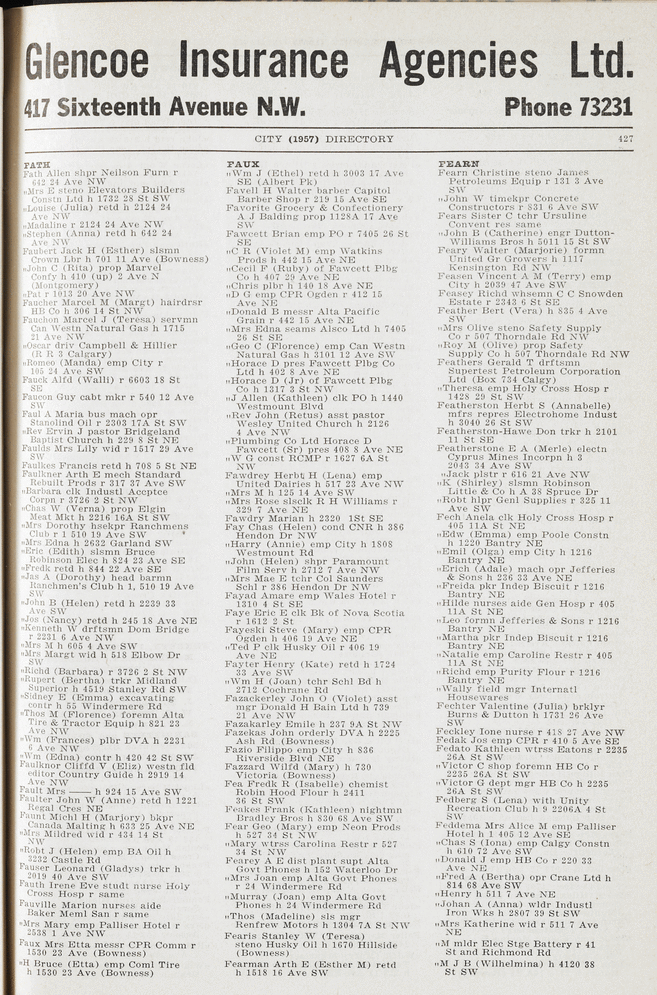 Glencoe Insurance Agencies Ltd.
417 Sixteenth Avenue N.W. Phone 73231
CITY (1957) DIRECTORY 427
FATH
Fath Allen shpr Neilson Furn r
642 24 Ave NW
„Mrs E steno Elevators Builders
Constn Ltd h 1732 28 St SW
„Louise (Julia) retd h 2124 24
Ave NW
„Madaline r 2124 24 Ave NW
„Stephen (Anna) retd h 642 24
Ave NW
Faubert Jack H (Esther) slsmn
Crown Lbr h 701 11 Ave (Bowness)
„John C (Rita) prop Marvel
Confy h 410 (up) 2 Ave N
(Montgomery)
„Pat r 1013 20 Ave NW
Faucher Marcel M (Margt) hairdrsr
HB Co h 306 14 St NW
Fauchon Marcel J (Teresa) servmn
Can Westn Natural Gas h 1715
21 Ave NW
„Oscar driv Campbell & Hillier
(R R 3 Calgary)
„Romeo (Manda) emp City r
105 24 Ave SW
Fauck Alfd (Walli) r 6603 18 St
SE
Faucon Guy cabt mkr r 540 12 Ave
SW
Faul A Maria bus mach opr
Stanolind Oil r 2303 17A St SW
„Rev Ervin J pastor Bridgeland
Baptist Church h 229 8 St NE
Faulds Mrs Lily wid r 1517 29 Ave
SW
Faulkes Francis retd h 708 5 St NE
Faulkner Arth E mech Standard
Rebuilt Prods r 317 37 Ave SW
„Barbara clk Industl Accptce
Corpn r 3726 2 St NW
„Chas W (Verna) prop Elgin
Meat Mkt h 2216 16A St SW
„Mrs Dorothy hsekpr Ranchmens
Club r 1 510 19 Ave SW
„Mrs Edna h 2632 Garland SW
„Eric (Edith) slsmn Bruce
Robinson Elec h 824 23 Ave SE
„Fredk retd h 844 22 Ave SE
„Jas A (Dorothy) head barmn
Ranchmen's Club h 1, 510 19 Ave
SW
„John B (Helen) retd h 2239 33
Ave SW
„Jos (Nancy) retd h 245 18 Ave NW
„Kenneth W drftsmn Dom Bridge
r 2231 6 Ave NW
„Mrs M h 605 4 Ave SW
„Mrs Margt wid h 518 Elbow Dr
SW
„Richd (Barbara) r 3726 2 St NW
„Rupert (Bertha) trkr Midland
Superior h 4519 Stanley Rd SW
„Sidney E (Emma) excavating
contr h 55 Windermere Rd
„Thos M (Florence) foremn Alta
Tire & Tractor Equip h 821 23
Ave NW
„Wm (Frances) plbr DVA h 2231
6 Ave NW
„Wm (Edna) contr h 420 42 St SW
Faulknor Cliffd V (Eliz) westn fld
editor Country Guide h 2919 14
Ave NW
Fault Mrs —— h 924 15 Ave SW
Faulter John W (Anne) retd h 1221
Regal Cres NE
Faunt Michl H (Marjory) bkpr
Canada Malting h 633 25 Ave NE
„Mrs Mildred wid r 434 14 St
NW
„Robt J (Helen) emp BA Oil h
3232 Castle Rd
Fauser Leonard (Gladys) trkr h
2019 40 Ave SW
Fauth Irene Eve studt nurse Holy
Cross Hosp r same
Fauville Marion nurses aide
Baker Meml San r same
„Mrs Mary emp Palliser Hotel r
2538 1 Ave NW
Faux Mrs Etta messr CPR Comm r
1530 23 Ave (Bowness)
„H Bruce (Etta) emp Coml Tire
h 1530 23 Ave (Bowness)
FAUX
„Wm J (Ethel) retd h 3003 17 Ave
SE (Albert Pk)
Favell H Walter barber Capitol
Barber Shop r 219 15 Ave SE
Favorite Grocery & Confectionery
A J Balding prop 1128A 17 Ave
SW
Fawcett Brian emp PO r 7405 26 St
SE
„C R (Violet M) emp Watkins
Prods h 442 15 Ave NE
„Cecil F (Ruby) of Fawcett Plbg
Co h 407 29 Ave NE
„Chris plbr h 140 18 Ave NE
„D G emp CPR Ogden r 412 15
Ave NE
„Donald B messr Alta Pacific
Grain r 442 15 Ave NE
„Mrs Edna seams Alsco Ltd h 7405
26 St SE
„Geo C (Florence) emp Can Westn
Natural Gas h 3101 12 Ave SW
„Horace D pres Fawcett Plbg Co
Ltd h 402 8 Ave NE
„Horace D (Jr) of Fawcett Plbg
Co h 1317 3 St NW
„J Allen (Kathleen) clk PO h 1440
Westmount Blvd
„Rev John (Retus) asst pastor
Wesley United Church h 1126
4 Ave NW
„Plumbing Co Ltd Horace D
Fawcett (Sr) pres 408 8 Ave NE
„W G const RCMP r 1627 6A St
NW
Fawdrey Herbt H (Lena) emp
United Dairies h 517 23 Ave NW
„Mrs M h 125 14 Ave SW
„Mrs Rose slsclk R H Williams r
329 7 Ave NE
Fawdry Marian h 2320 1St SE
Fay Chas (Helen) cond CNR h 386
Hendon Dr NW
„Harry (Annie) emp City h 1808
Westmount Rd
„John (Helen) shpr Paramount
Film Serv h 2712 7 Ave NW
„Mrs Mae E tchr Col Saunders
Schl r 386 Hendon Dr NW
Fayad Amare emp Wales Hotel r
1310 4 St SE
Faye Eric E clk Bk of Nova Scotia
r 1612 2 St
Fayeski Steve (Mary) emp CPR
Ogden h 406 19 Ave NE
„Ted P clk Husky Oil r 406 19
Ave NE
Fayter Henry (Kate) retd h 1724
33 Ave SW
„Wm H (Joan) tchr Schl Bd h
2712 Cochrane Rd
Fazackerley John O (Violet) asst
mgr Donald H Bain Ltd h 739
21 Ave NW
Fazakarley Emile h 237 9A St NW
Fazekas John orderly DVA h 2225
Ash Rd (Bowness)
Fazio Filippo emp City h 836
Riverside Blvd NE
Fazzard Wilfd (Mary) h 730
Victoria (Bowness)
Fea Fredk R (Isabelle) chemist
Robin Hood Flour h 2411
36 St SW
Feakes Frank (Kathleen) nightmn
Bradley Bros h 830 68 Ave SW
Fear Geo (Mary) emp Neon Prods
h 527 34 St NW
„Mary wtrss Carolina Restr r 527
34 St NW
Fearey A E dist plant supt Alta
Govt Phones h 152 Waterloo Dr
„Mrs Joan emp Alta Govt Phones
r 24 Windermere Rd
„Murray (Joan) emp Alta Govt
Phones h 24 Windermere Rd
„Thos (Madeline) sls mgr
Renfrew Motors h 1304 7A St NW
Fearis Stanley W (Teresa)
steno Husky Oil h 1670 Hillside
(Bowness)
Fearman Arth E (Esther M) retd
h 1518 16 Ave SW
FEARN
Fearn Christine steno James
Petroleums Equip r 131 3 Ave
SW
„John W timekpr Concrete
Constructors r 831 6 Ave SW
Fears Sister C tchr Ursuline
Convent res same
„John B (Catherine) engr Dutton-
Williams Bros h 5011 15 St SW
Feary Walter (Marjorie) formn
United Gr Growers h 1117
Kensington Rd NW
Feasen Vincent A M (Terry) emp
City h 2039 47 Ave SW
Feasey Richd whsemn C C Snowden
Estate r 2343 6 St SE
Feather Bert (Vera) h 835 4 Ave
SW
„Mrs Olive steno Safety Supply
Co r 507 Thorndale Rd NW
„Roy M (Olive) prop Safety
Supply Co h 507 Thorndale Rd NW
Feathers Gerald T drftsmn
Supertest Petroleum Corporation
Ltd (Box 734 Calgy)
„Theresa emp Holy Cross Hosp r
1428 29 St SW
Featherston Herbt S (Annabelle)
mfrs repres Electrohome Indust
h 3040 26 St SW
Featherston-Hawe Don trkr h 2101
11 St SE
Featherstone E A (Merle) electn
Cyprus Mines Incorpn h 3
2043 34 Ave SW
„Jack plstr r 616 21 Ave NW
„K (Shirley) slsmn Robinson
Little & Co h A 38 Spruce Dr
„Robt hlpr Genl Supplies r 325 11
Ave SW
Fech Anela clk Holy Cross Hosp r
405 11A St NE
„Edw (Emma) emp Poole Constn
h 1220 Bantry NE
„Emil (Olga) emp City h 1216
Bantry NE
„Erich (Adale) mach opr Jefferies
& Sons h 236 33 Ave NE
„Freida pkr Indep Biscuit r 1216
Bantry NE
„Hilde nurses aide Gen Hosp r 405
11A St NE
„Leo formn Jefferies & Sons r 1216
Bantry NE
„Martha pkr Indep Biscuit r 1216
Bantry NE
„Natalie emp Caroline Restr r 405
11A St NE
„Richd emp Purity Flour r 1216
Bantry NE
„Wally field mgr Internatl
Housewares
Fechter Valentine (Julia) brklyr
Burns & Dutton h 1731 26 Ave
SW
Feckley Ione nurse r 418 27 Ave NW
Fedak Jos emp CPR r 410 5 Ave SE
Fedato Kathleen wtrss Eatons r 2235
26A St SW
„Victor C shop foremn HB Co r
2235 26A St SW
„Victor G dept mgr HB Co h 2235
26A St SW
Fedberg S (Lena) with Unity
Recreation Club h 9 2206A 4 St
SW
Feddema Mrs Alice M emp Palliser
Hotel h 1 405 12 Ave SE
„Chas S (Iona) emp Calgy Constn
h 610 72 Ave SW
„Donald J emp HB Co r 220 33
Ave NE
„Fred A (Bertha) opr Crane Ltd h
814 68 Ave SW
„Henry h 511 7 Ave NE
„Johan A (Anna) wldr Industl
Iron Wks h 2807 39 St SW
„Mrs Katherine wid r 511 7 Ave
NE
„M mldr Elec Stge Battery r 41
St and Richmond Rd
„M J B (Wilhelmina) h 4120 38
St SW